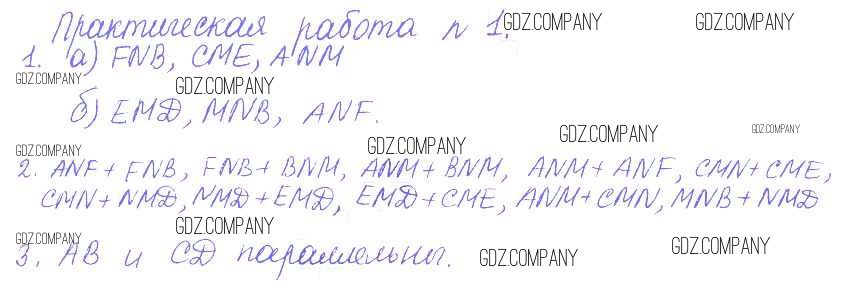 Практическая работа n 1. GDZ.COMPANY GDZ.COMPANY
1. а) FNB, CME, ANM
GDZ.COMPANY GDZ.COMPANY
б) EMD, MNB, ANF.
GDZ.COMPANY GDZ.COMPANY GDZ.COMPANY GDZ.COMPANY
2. ANF + FNB, FNB + BNM, ANM + BNM, ANM + ANF, CMN + CME,
CMN + NMD, NMD + EMD, EMD + CME, ANM + CMN, MNB + NMD
GDZ.COMPANY GDZ.COMPANY GDZ.COMPANY
3. AB и CD параллельны. GDZ.COMPANY